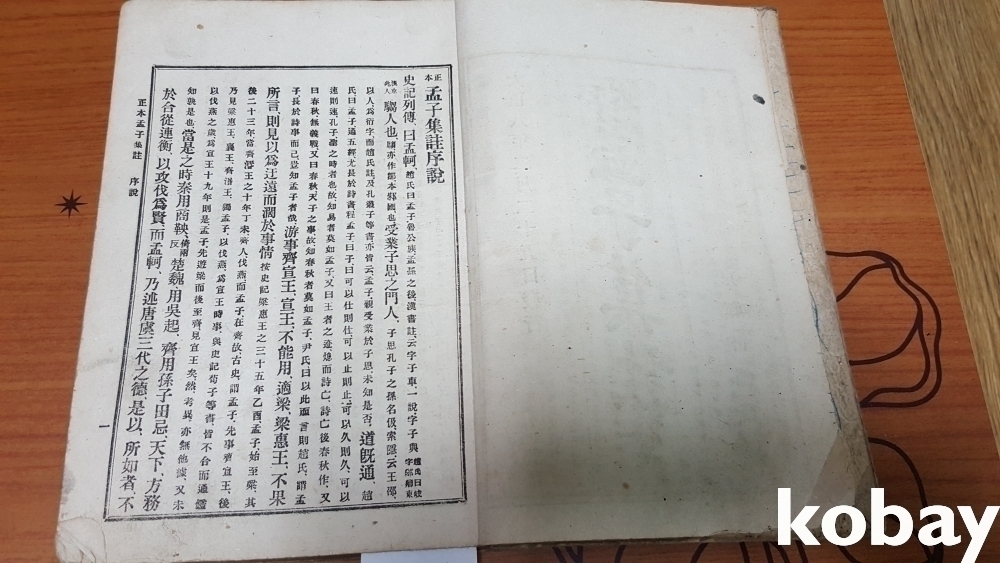 正本 孟子集註序說
史記列傳、曰孟軻、趙氏曰孟子魯公族孟孫之後漢書註云字子車一說字子輿 趙氏曰岐字邠卿東
漢京兆人 騶人也、騶亦作鄒、本邾國也 受業子思之門人、子思孔子之孫名伋、索隱云王邵、
以人爲衍字而趙氏註及孔叢子等書亦皆云孟子、親受業於子思未知是否、道旣通、趙
氏曰孟子通五經尤長於詩書程子曰孟子曰可以仕則仕可以止則止可以久則久、可以
速則速、孔子聖之時者也故知易者莫如孟子、又曰王者之迹熄而詩亡、詩亡後春秋作、又
曰春秋無義戰又曰春秋天子之事故知春秋者莫如孟子、尹氏曰以此而言則趙氏、謂孟
子長於詩書而已豈知孟子者哉、游事齊宣王、宣王、不能用、適梁、梁惠王、不果
所言則見以爲迂遠而濶於事情 按史記梁惠王之三十五年乙酉孟子始至梁、其
後二十三年當齊湣王之十年丁未齊人伐燕而孟子、在齊故、古史謂孟子、先事齊宣王、後
乃見梁惠王、襄王、齊湣王、獨孟子、以伐燕、爲宣王時事、與史記荀子等書、皆不合而通鑑
以伐燕之歲、爲宣王十九年則是、孟子先遊梁而後至齊見宣王矣、然、考異、亦無他據、又未
知孰是也 當是之時秦用商鞅、倚兩反 楚魏、用吳起、齊用孫子田忌、天下、方務
於合從連衡、以攻伐爲賢、而孟軻、乃述唐虞三代之德、是以、所如者、不
正本孟子集註 序說 一
kobay